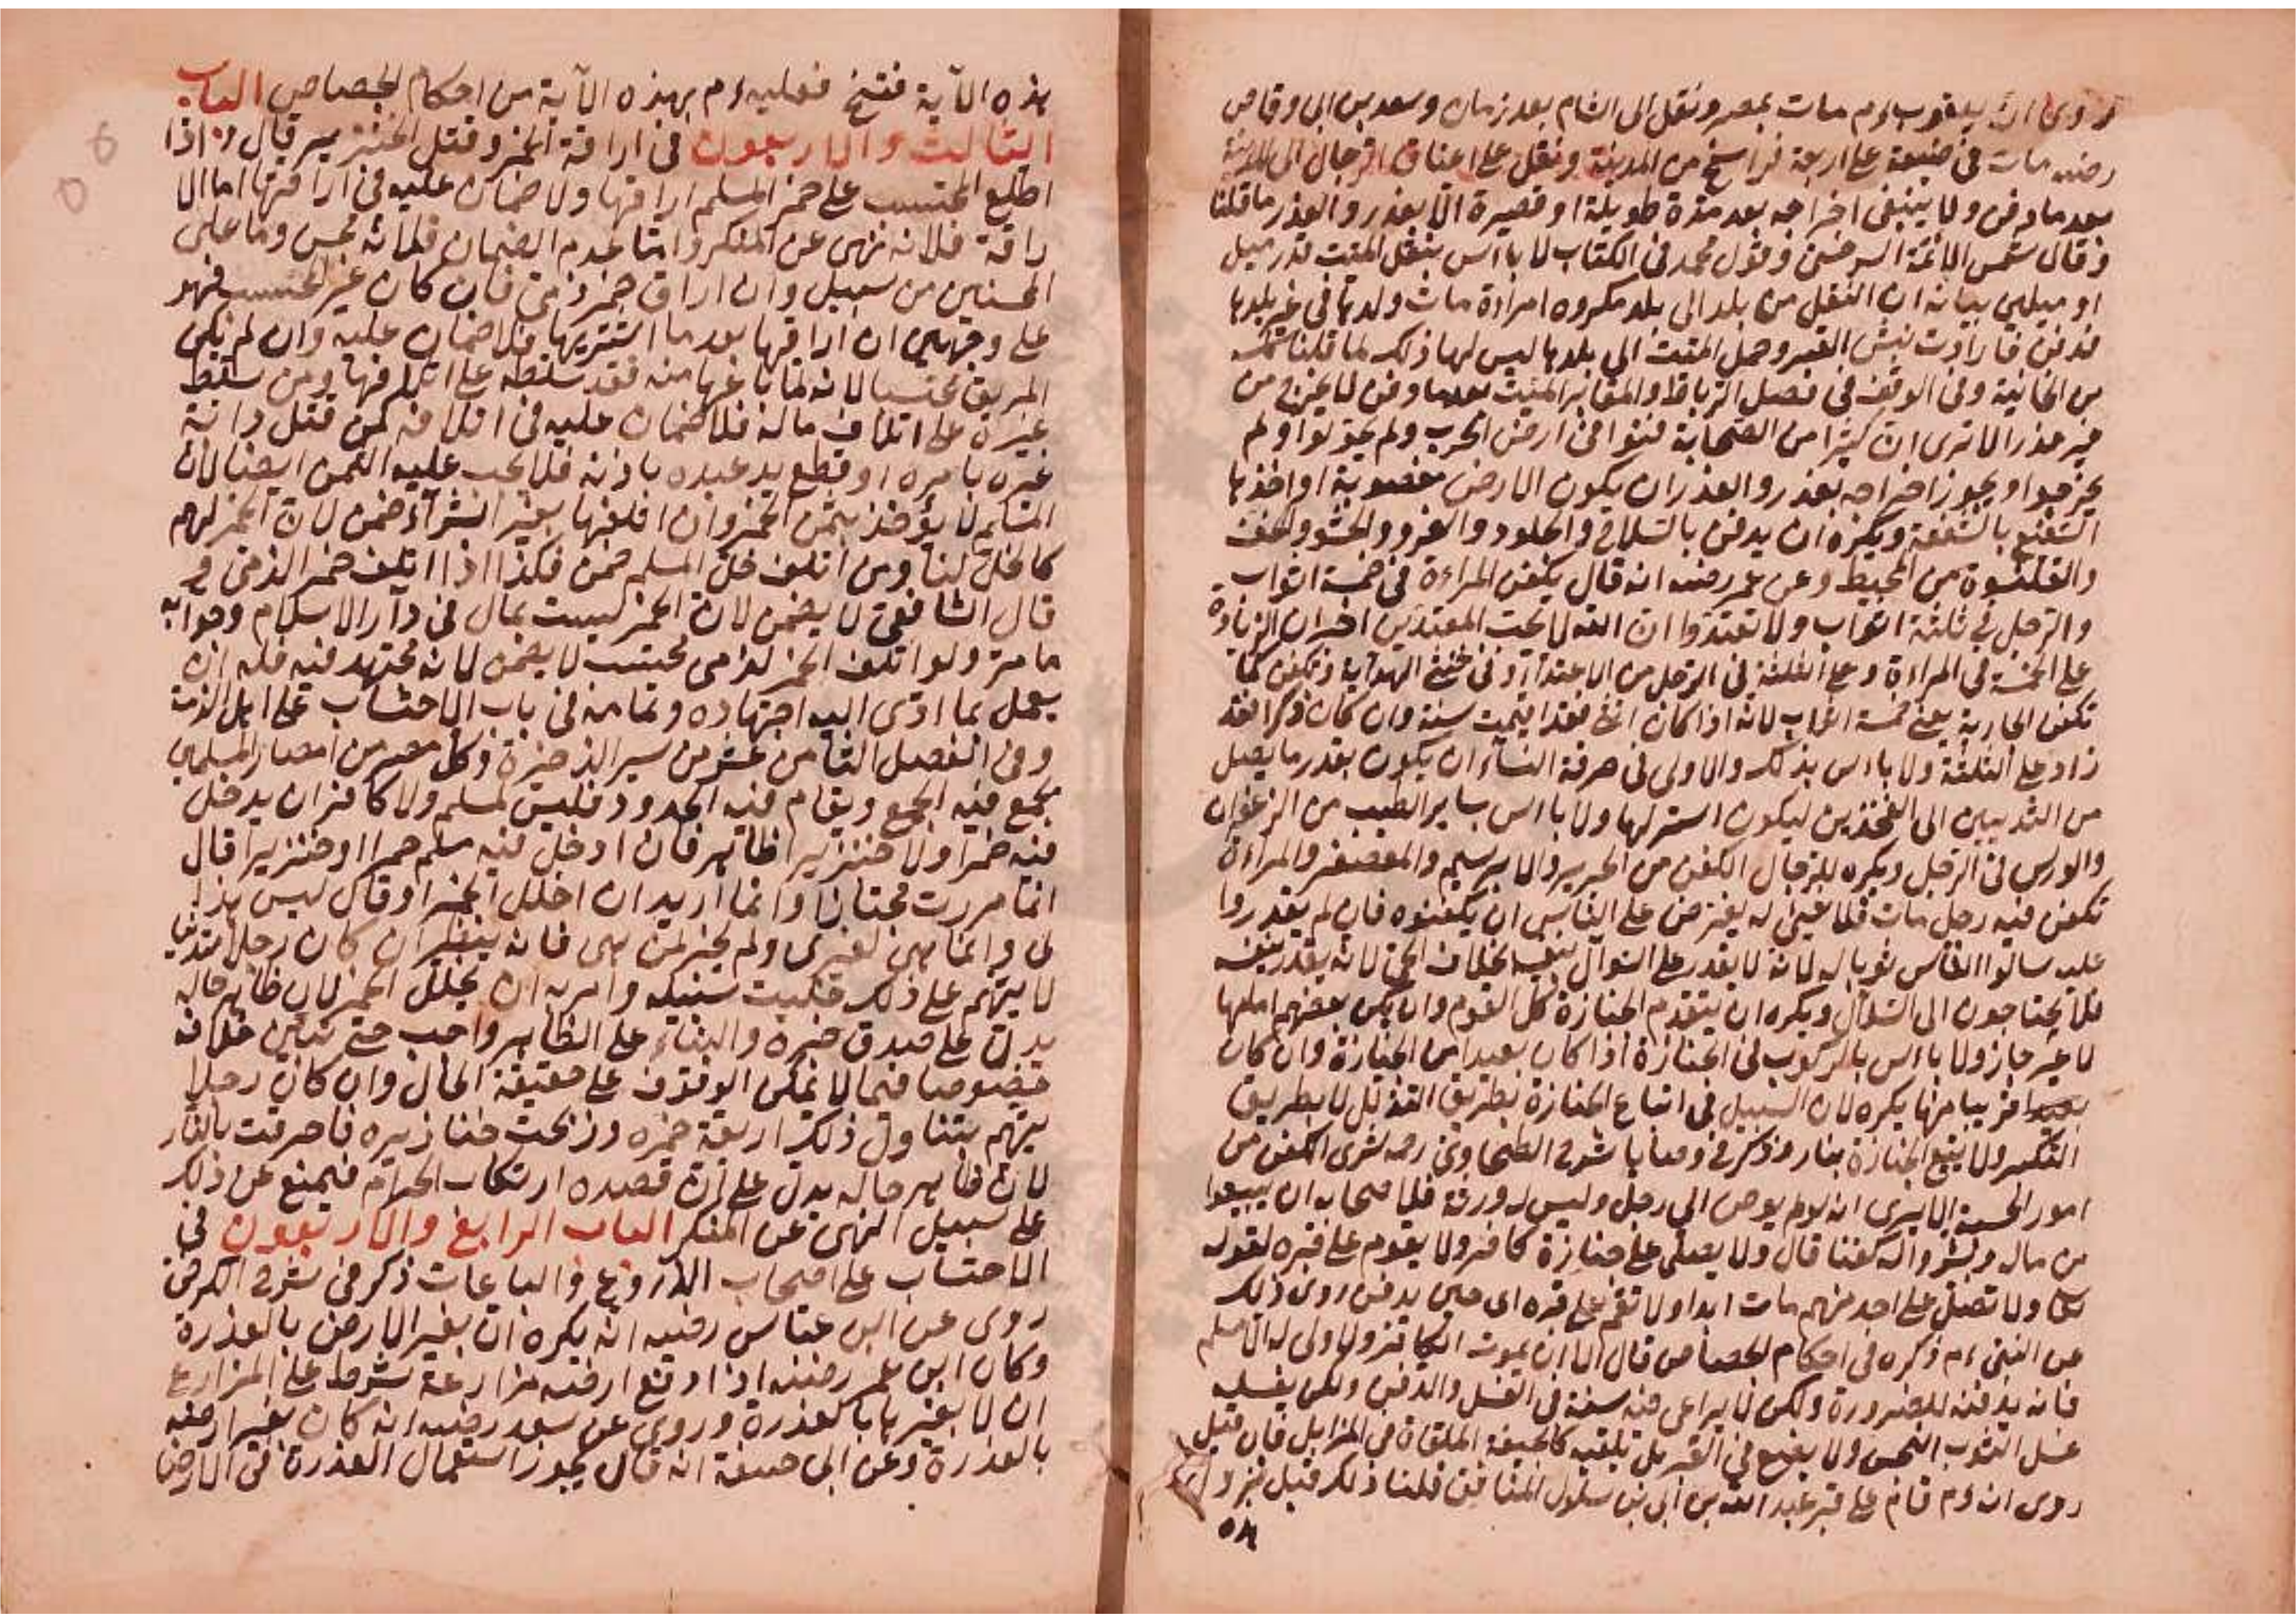 روى ان يعقوب ءم مات بمصر ونقل الى الشام بعد زمان وسعد بن ابى وقاص
رضه مات فى ضيعة على اربعة فراسخ من المدينة ونقل على اعناق الرجال الى المدينة
بعد ما دفن ولا ينبغى اخراجه بعد مدة طويلة او قصيرة الا بعذر والعذر ما قلنا
وقال شمس الائمة السرخسى وقول محمد فى الكتاب لا باس بنقل الميت قدر ميل
او ميلين بيانه ان النقل من بلد الى بلد مكروه امراءة مات ولدها فى غير بلدها
فدفن فارادت نبش القبر وحمل الميت الى بلدها ليس لها ذلك لما قلنا
من الخانية وفى الوقف فى فصل الرباط والمقابر الميت بعدما دفن لا يخرج من
غير عذر الا ترى ان كثيرا من الصحابة دفنوا فى ارض الحرب ولم يحولوا ولم
يخرجوا ويجوز اخراجه بعذر والعذر ان يكون الارض مغصوبة او اخذها
الشفيع بالشفعة ويكره ان يدفن بالسلاح والجلود والفرو والحشو والخف
والقلنسوة من المحيط وعن عمر رضه انه قال يكفن المراءة فى خمسة اثواب
والرجل فى ثلثة اثواب ولا تعتدوا ان الله لا يحب المعتدين اخبر ان الزيادة
على الخمسة فى المراءة وعلى الثلثة فى الرجل من الاعتداء وفى خنثى الهداية وتكفن كما
تكفن الجارية يعنى خمسة اثواب لانه اذا كان انثى فقد اقيمت سنة وان كان ذكرا فقد
زاد على الثلثة ولا باس بذلك والاولى فى خرقة النساء ان يكون بقدر ما يصل
من الثديين الى الفخذين ليكون استر لها ولا باس بساير الطيب من الزعفران
والورس فى الرجل ويكره للرجال الكفن من الحرير والابريسم والمعصفر والمراءة
تكفن فيه رجل مات فلا شئ له يفترض على الناس ان يكفنوه فان لم يقدروا
عليه سالوا الناس ثوبا له لانه لا يقدر على السوال بنفسه بخلاف الحى لانه يقدر بنفسه
فلا يحتاجون الى السؤال ويكره ان يتقدم الجنازة كل القوم وان يكن بعضهم امامها
لا غير جاز ولا باس بالركوب فى الجنازة اذا كان بعيدا من الجنازة وان كان
قريبا منها يكره لان السبيل فى اتباع الجنازة بطريق التذلل لا بطريق
التكبر ولا يتبع الجنازة بنار وذكر فى وصايا شرح الطحاوى رحمه شرى الكفن من
امور الحسبة الا يرى انه لو لم يوص الى رجل وليس له ورثة فلاصحابه ان يبيعوا
من ماله ويشتروا له كفنا قال ولا يصلى على جنازة كافر ولا يقوم على قبره لقوله
تعا ولا تصل على احد منهم مات ابدا ولا تقم على قبره اى حين يدفن روى ذلك
عن النبى ءم ذكره فى احكام الجصاص قال الا ان يموت الكافر ولا ولى له الا مسلم
فانه يدفنه للضرورة ولكن لا يراعى فيه سنة فى الغسل والدفن ولكن يغسله
غسل الثوب النجس ولا يضع فى القبر بل يلقيه كالجيفة الملقاة فى المزابل فان قيل
روى انه ءم قام على قبر عبد الله بن ابى بن سلول المنافق قلنا ذلك قبل نزول
٥٨
هذه الآية فنسخ فعليه ءم بهذه الآية من احكام الجصاص الباب
الثالث والاربعون فى اراقة الخمر وقتل الخنزير قال واذا
اطلع المحتسب على خمر المسلم اراقها ولا ضمان عليه فى اراقتها اما الا
راقة فلانه نهى عن المنكر واما عدم الضمان فلانه محسن وما على
المحسنين من سبيل وان اراق خمر ذمى فان كان غير المحتسب فهو
على وجهين ان اراقها بعد ما اشتريها فلا ضمان عليه وان لم يكن
المريق محتسبا لانه لما باعها منه فقد سلطه على اتلافها ومن سلط
غيره على اتلاف ماله فلا ضمان عليه فى اتلافه كمن قتل دابة
غيره بامره او قطع يد عبده باذنه فلا يجب عليه الثمن ايضا لان
المسلم لا يؤخذ بثمن الخمر وان اتلفها بغير الشرآء ضمن لان الخمر لهم
كالخل لنا ومن اتلف خل المسلم ضمن فكذا اذا اتلف خمر الذمى و
قال الشافعى لا يضمن لان الخمر ليست بمال فى دار الاسلام وجوابه
ما مر ولو اتلف الخمر لذمى محتسب لا يضمن لانه مجتهد فيه فله ان
يعمل بما ادى اليه اجتهاده وتمامه فى باب الاحتساب على اهل الذمة
وفى الفصل الثامن عشر من سير الذخيرة وكل مصر من امصار المسلمين
يجمع فيه الجمع ويقام فيه الحدود فليس لمسلم ولا كافر ان يدخل
فيه خمرا ولا خنزيرا ظاهر فان ادخل فيه مسلم خمرا او خنزيرا قال
انما مررت مجتازا وانما اريد ان اخلل الخمر او قال ليس هذا
لى وانما هى لغيرى ولم يخبر لمن هى فانه ينظر ان كان رجلا متدينا
لا يتهم على ذلك خليت سبيله وامر به ان يخلل الخمر لان ظاهر حاله
يدل على صدق خبره والبناء على الظاهر واجب حتى يتبين خلافه
خصوصا فيما لا يمكن الوقوف على حقيقة الحال وان كان رجلا
يتهم بتناول ذلك اريقة خمره وذبحت خنازيره فاحرقت بالنار
لان ظاهر حاله يدل على ان قصده ارتكاب الحرام فيمنع عن ذلك
على سبيل النهى عن المنكر الباب الرابع والاربعون فى
الاحتساب على اصحاب الزروع والباعات ذكر فى شرح الكرخى
روى عن ابن عباس رضيه انه يكره ان يغير الارض بالعذرة
وكان ابن عمر رضيه اذا دفع ارضه مزارعة شرط على المزارع
ان لا يغيرها بالعذرة وروى عن سعد رضيه انه كان يغير ارضه
بالعذرة وعن ابى حنيفة انه قال يجوز استعمال العذرة فى الارض